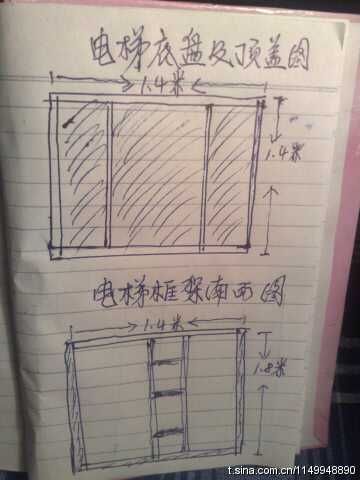 电梯底盘及顶盖图
1.4米
1.4米
电梯框架南面图
1.4米
1.8米
t.sina.com.cn/1149948890